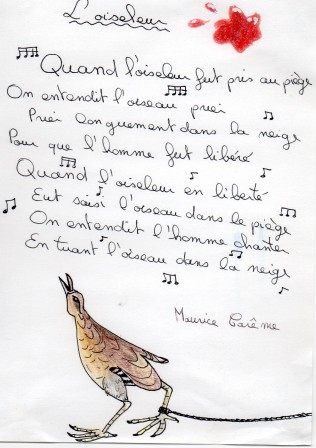 L'oiseleur
Quand l'oiseleur fut pris au piège
On entendit l'oiseau prier
Prier longuement dans la neige
Pour que l'homme fut libéré
Quand l'oiseleur en liberté
Eut saisi l'oiseau dans le piège
On entendit l'homme chanter
En tuant l'oiseau dans la neige
Maurice Carême